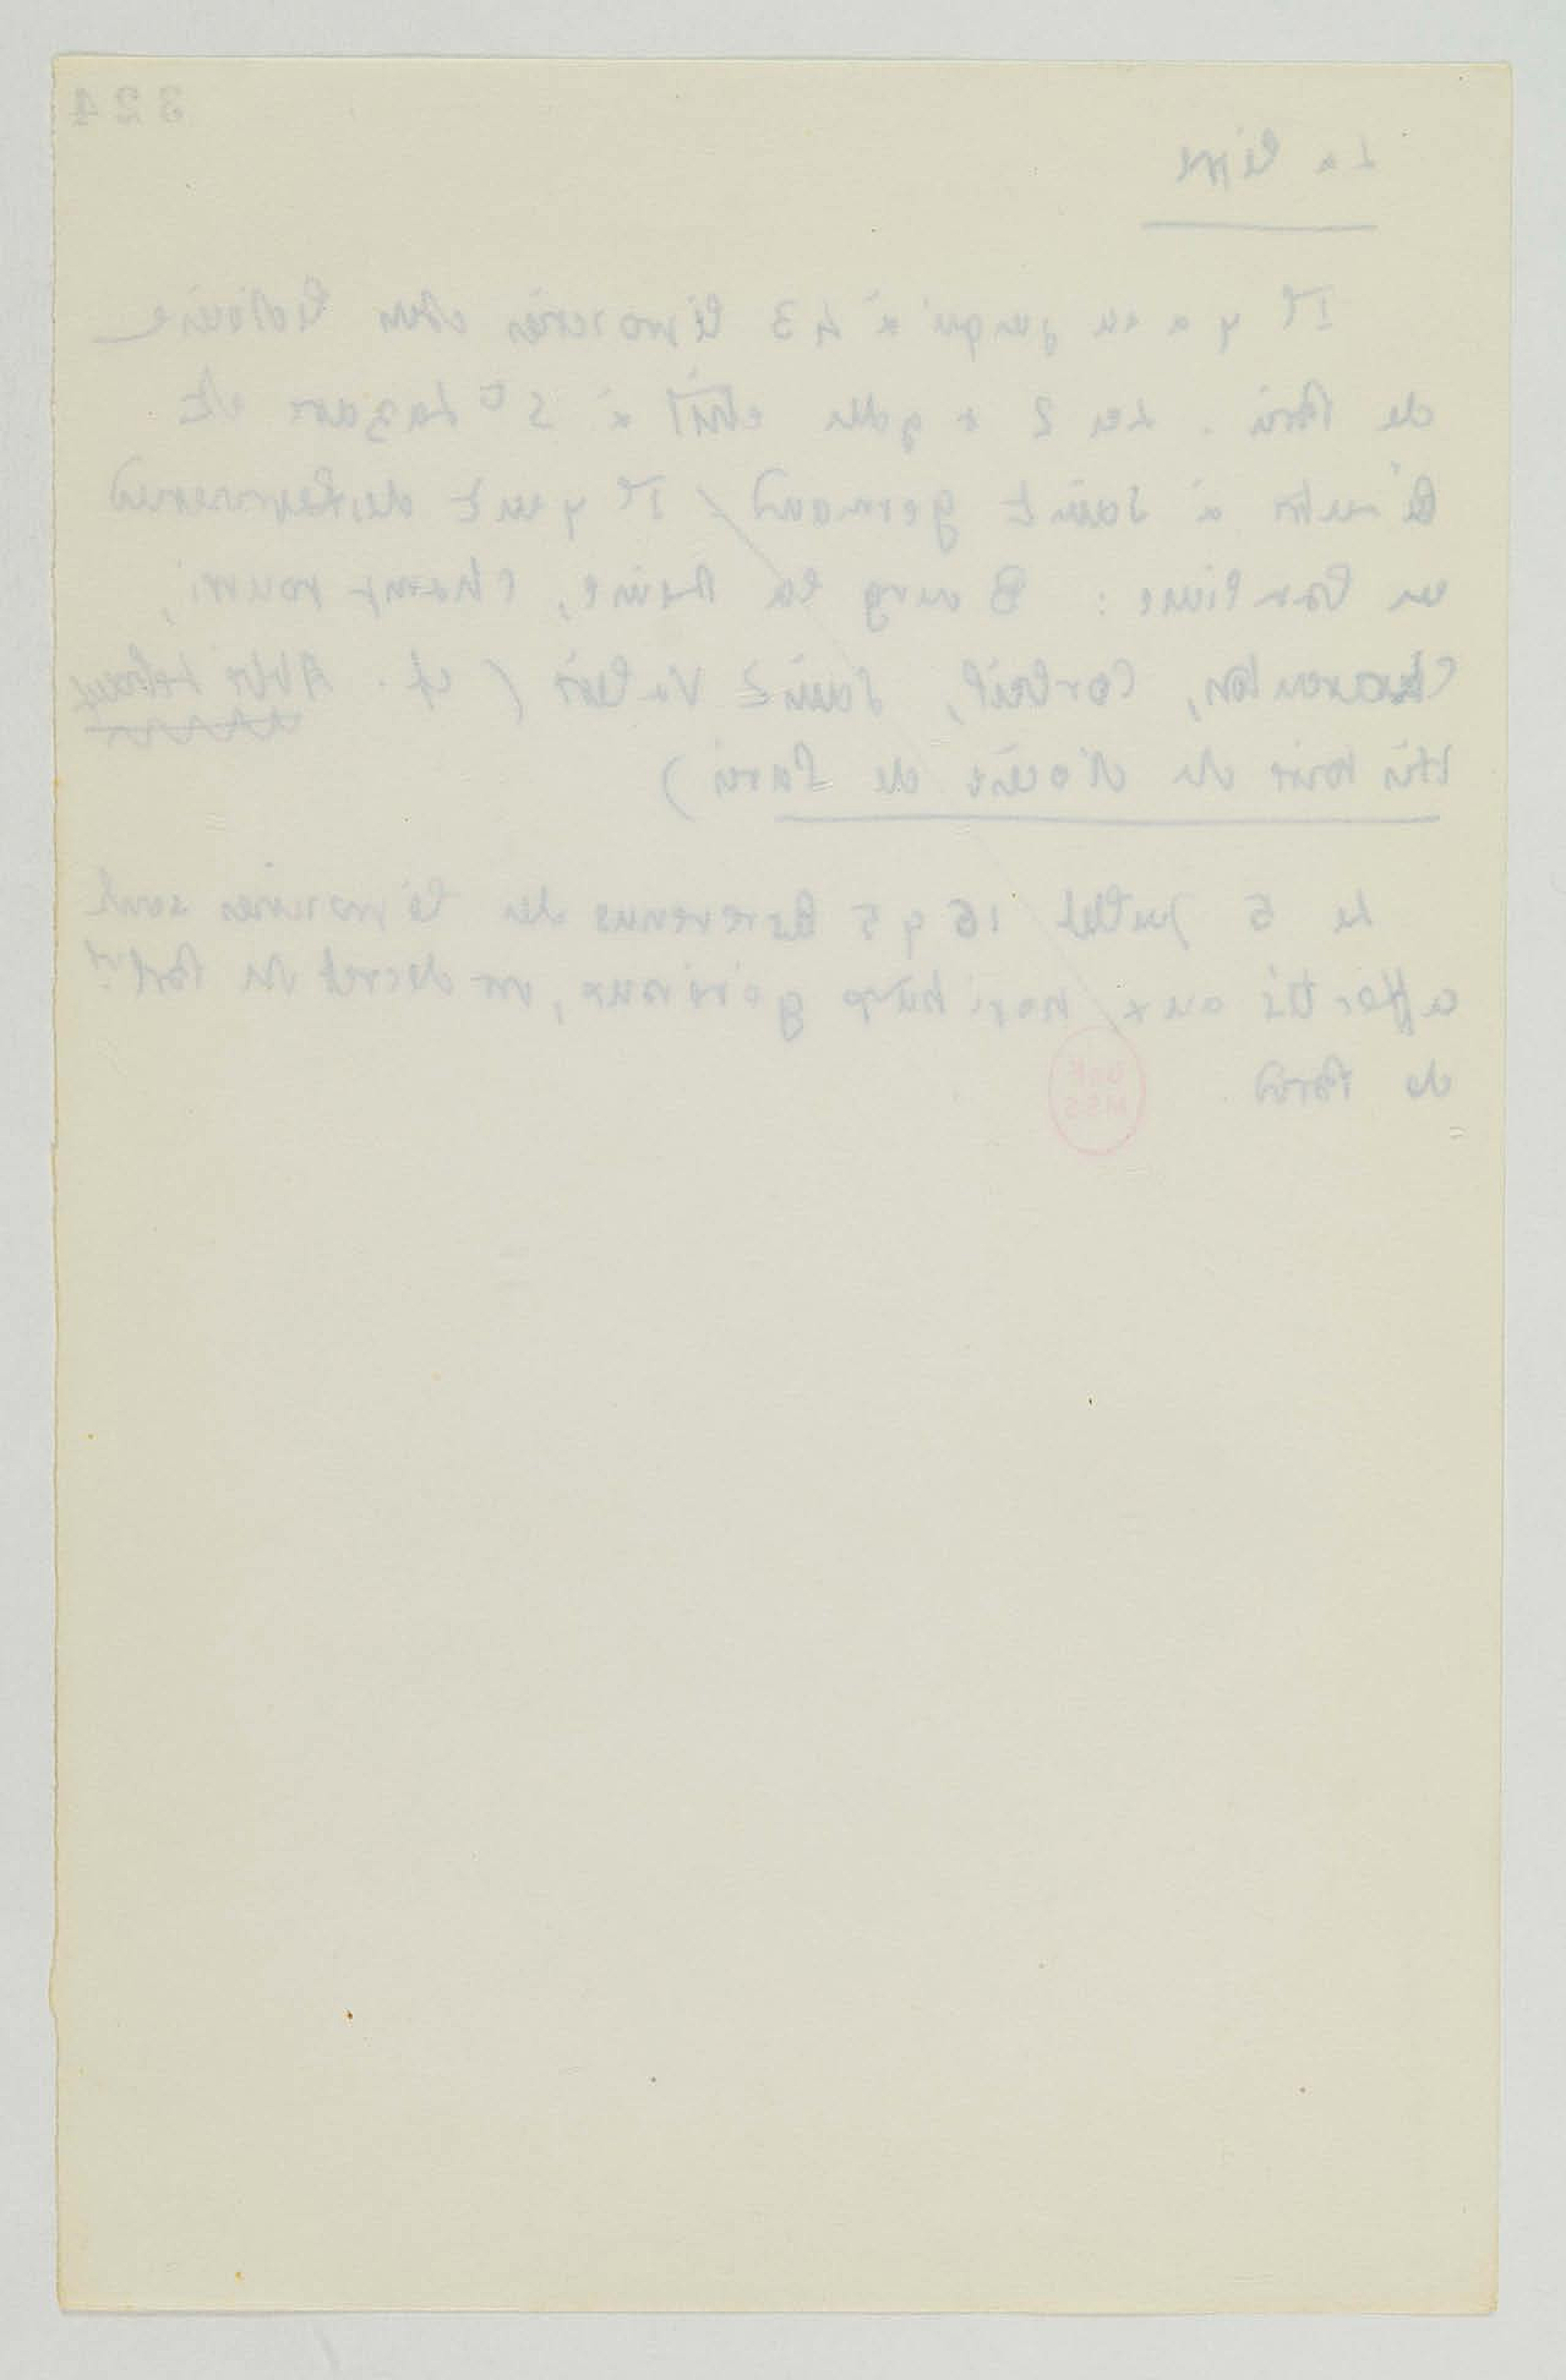 324
La lèpre
Il y a eu jusqu'à 43 léproseries dans le diocèse
de Paris. Les 2 + gdes étaient à St Lazare et
à Saint Germain / Il y eut des léproseries
en banlieue : Bourg la Reine, Champ pourri,
Charenton, Corbeil, Saint Valère ( cf. Abbé Lebeuf
Histoire du diocèse de Paris )
Le 5 Juillet 1695 les revenus des léproseries sont
affectés aux hopitaux généraux, par decret du Parlt
de Paris.
BnF
MSS